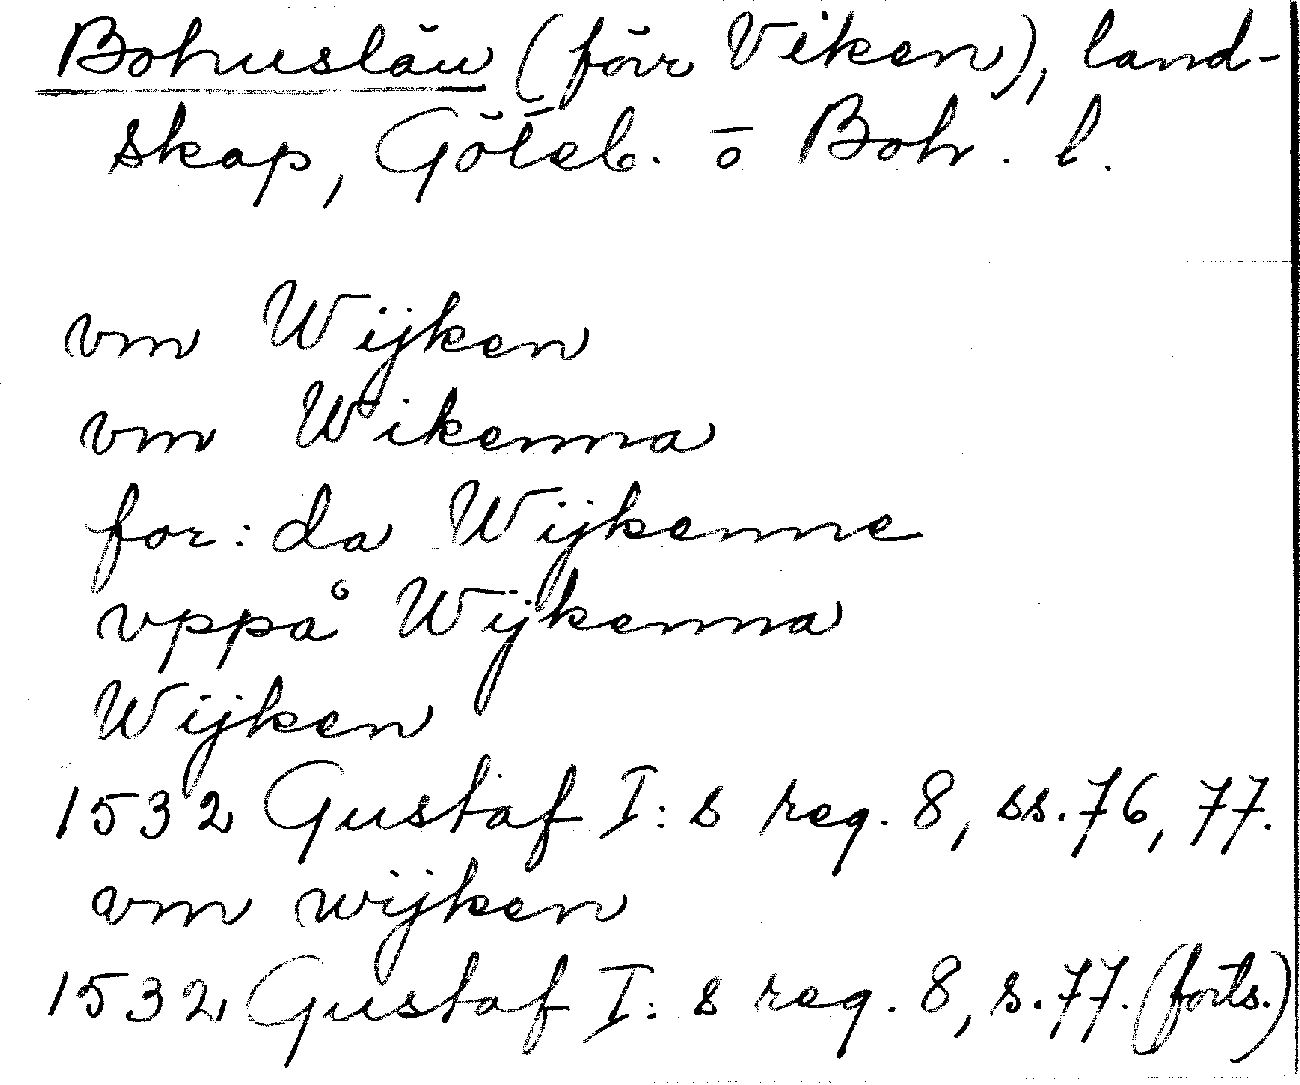 Bohuslän (förr Viken), land-
skap, Göteb. o Boh. l.
vm Wijken
vm Wikenna
for: da Wijkenne
vppå Wijkenna
Wijken
1532 Gustaf I: s reg. 8, ss. 76, 77.
vm wijken
1532 Gustaf I: s reg. 8, s. 77. (forts.)